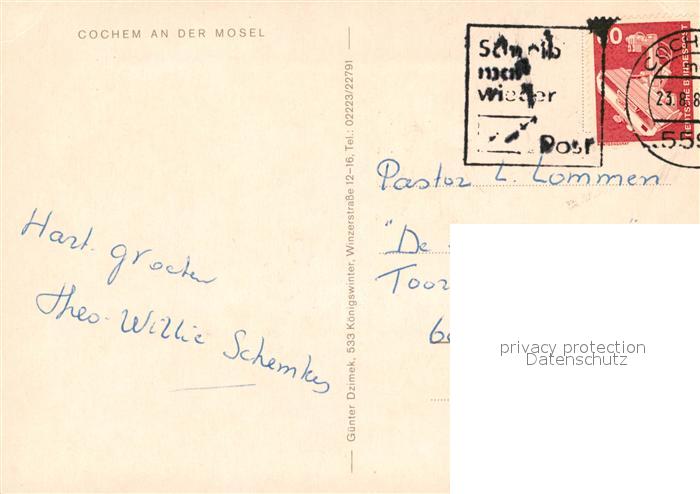 COCHEM AN DER MOSEL
Schreib
mal
wieder
Post
60
DEUTSCHE BUNDESPOST
COCH
23.8.8
559
Pastor L. Lommen
"De
Toor
6
Hart. groeten
Theo-Willie Schemkes
Günter Dzimek, 533 Königswinter, Winzerstraße 12–16, Tel.: 02223/22791
privacy protection
Datenschutz